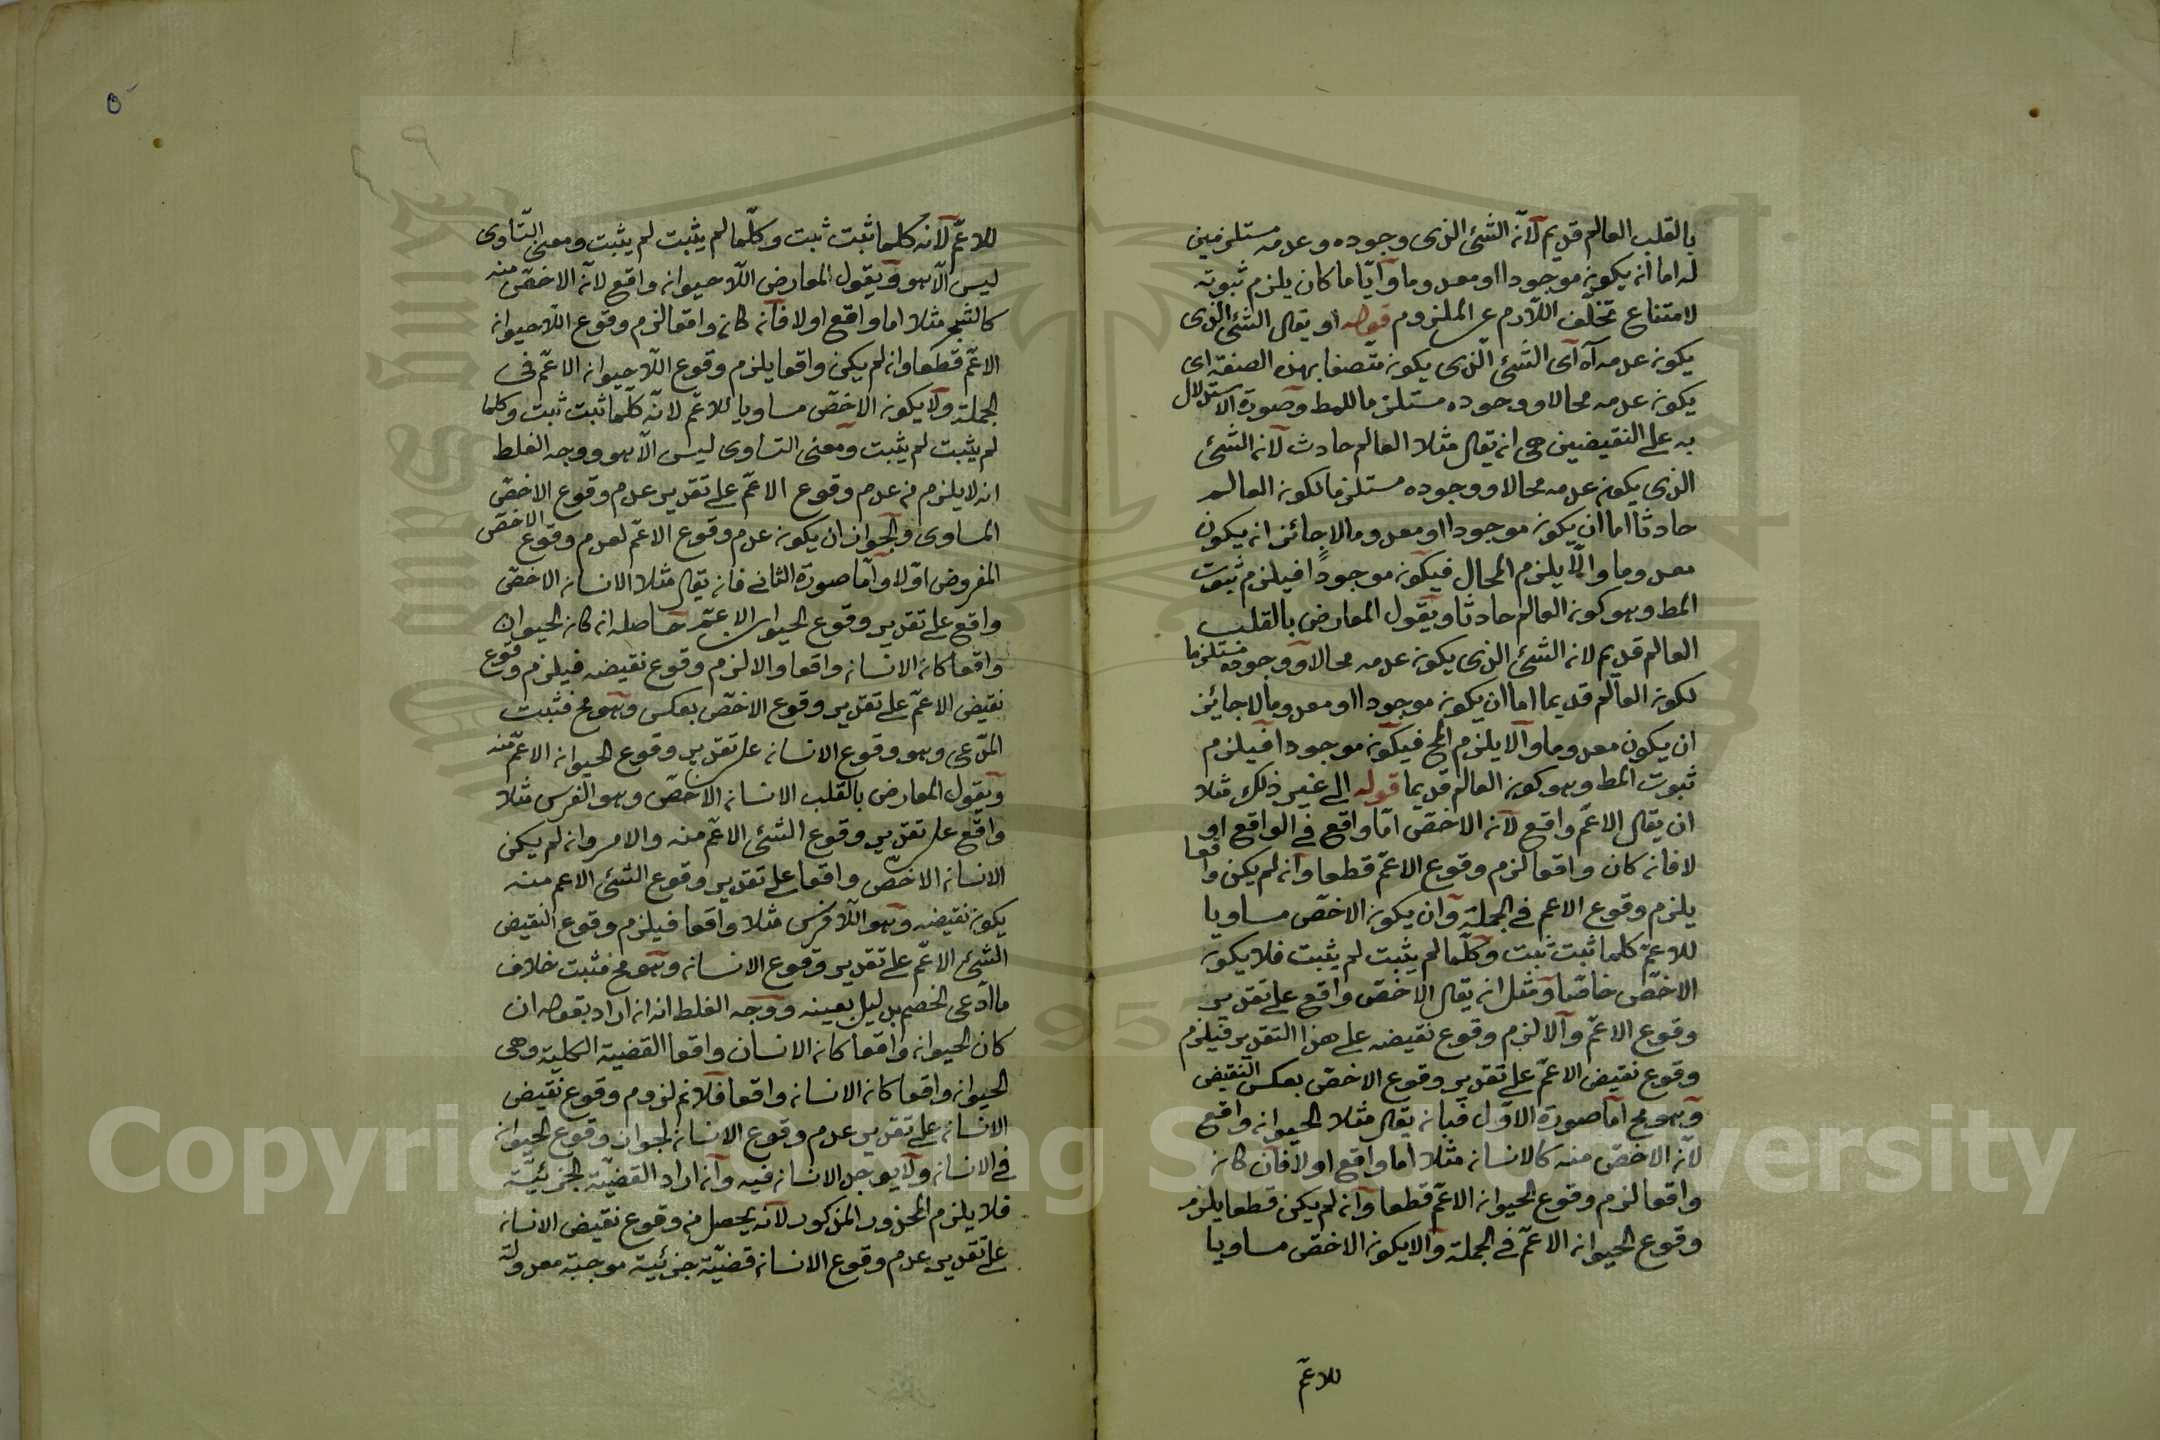 بالقلب العالم قديم لانه الشئ الذى وجوده وعدمه مستلزمين
له اما ان يكون موجودا او معدوما وايّا ما كان يلزم ثبوته
لامتناع تخلّف اللازم عن الملزوم قوله او يقال الشئ الذى
يكون عدمه آه اى الشئ الذى يكون متّصفا بهذه الصفة اى
يكون عدمه محالا ووجوده مستلزما للمط وصورة الاستدلال
به على النقيضين هى ان يقال مثلا العالم حادث لانه الشئ
الذى يكون عدمه محالا ووجوده مستلزما لكون العالم
حادثا اما ان يكون موجودا او معدوما لا جائز ان يكون
معدوما والّا يلزم المحال فيكون موجودا فيلزم ثبوت
المط وهو كون العالم حادثا ويقول المعارض بالقلب
العالم قديم لانه الشئ الذى يكون عدمه محالا ووجوده مستلزما
لكون العالم قديما اما ان يكون موجودا او معدوما لا جايز
ان يكون معدوما والا يلزم المح فيكون موجودا فيلزم
ثبوت المط وهو كون العالم قديما قوله الى غير ذلك مثلا
ان يقال الاعمّ واقع لانه الاخصّ امّا واقع فى الواقع او
لا فانه كان واقعا لزم وقوع الاعمّ قطعا وان لم يكن واقعا
يلزم وقوع الاعم فى الجملة وان يكون الاخصّ مساويا
للاعمّ كلما ثبت ثبت وكلّما لم يثبت لم يثبت فلا يكون
الاخصّ خاصّا ومثل ان يقال الاخصّ واقع على تقدير
وقوع الاعمّ والا لزم وقوع نقيضه على هذا التقدير فيلزم
وقوع نقيض الاعمّ على تقدير وقوع الاخصّ بعكس النقيض
وهو مح امّا صورة الاوّل فبان يقال مثلا الحيوان واقع
لانّ الاخصّ منه كالانسان مثلا اما واقع او لا فان كان
واقعا لزم وقوع الحيوان الاعمّ قطعا وان لم يكن قطعا يلزم
وقوع الحيوان الاعمّ فى الجملة والا يكون الاخصّ مساويا
للاعمّ
٥
للاعمّ لانه كلما ثبت ثبت وكلّما لم يثبت لم يثبت ومعنى التّساوى
ليس الّا هو ويقول المعارض اللّا حيوان واقع لانّ الاخصّ منه
كالشجر مثلا اما واقع او لا فانه كان واقعا لزم وقوع اللّاحيوان
الاعمّ قطعا وان لم يكن واقعا يلزم وقوع اللّا حيوان الاعمّ فى
الجملة ولا يكون الاخصّ مساويا للاعمّ لانّه كلّما ثبت ثبت وكلما
لم يثبت لم يثبت ومعنى التساوى ليس الّا هو ووجه الغلط
انه لا يلزم من عدم وقوع الاعمّ على تقدير عدم وقوع الاخصّ
المساوى ولجواز ان يكون عدم وقوع الاعمّ لعدم وقوع الاخصّ
المفروض اوّلا وامّا صورة الثانى فان يقال مثلا الانسان الاخصّ
واقع على تقدير وقوع الحيوان الاعمّ حاصله ان كان الحيوان
واقعا كان الانسان واقعا والا لزم وقوع نقيضه فيلزم وقوع
نقيض الاعمّ على تقدير وقوع الاخصّ بعكس وهو مح فثبت
المدّعى وهو وقوع الانسان على تقدير وقوع الحيوان الاعمّ منه
ويقول المعارض بالقلب الانسان الاخصّ وهو الفرس مثلا
واقع على تقدير وقوع الشئ الاعمّ منه والامر وان لم يكن
الانسان الاخصّ واقعا على تقدير وقوع الشئ الاعم منه
يكون نقيضه وهو اللّا فرس مثلا واقعا فيلزم وقوع النقيض
الشئ الاعمّ على تقدير وقوع الانسان وهو مح فثبت خلاف
ما ادّعى الخصم بدليل بعينه ووجه الغلط انه ان اراد بقوله ان
كان الحيوان واقعا كان الانسان واقعا القضية الكلية وهى
الحيوان واقعا كان الانسان واقعا فلانم لزوم وقوع نقيض
الانسان على تقدير عدم وقوع الانسان لجواز وقوع الحيوان
فى الانسان ولا يوجد الانسان فيه وان اراد القضيّة الجزئيّة
فلا يلزم المحذور المذكور لانّه يحصل من وقوع نقيض الانسان
على تقدير عدم وقوع الانسان قضيّة جزئية موجبة معدولة